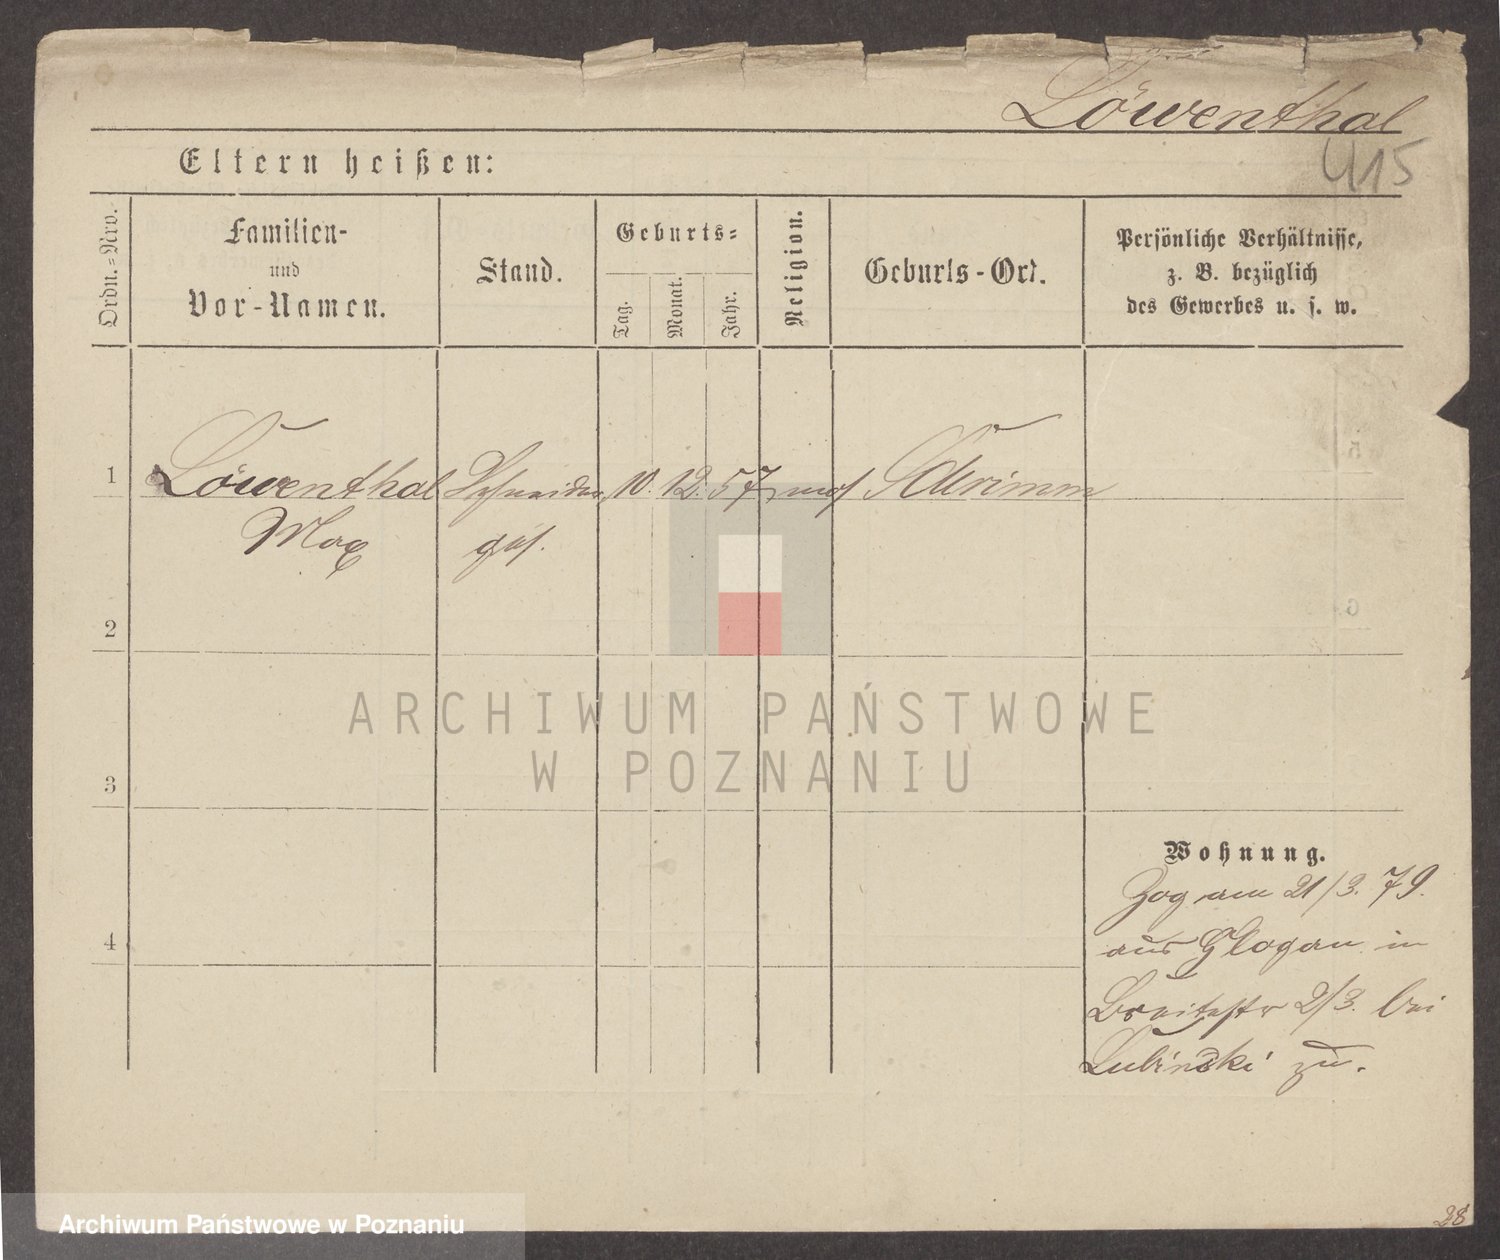 Löwenthal
415
Eltern heißen:
Ordn.=Nro.
Familien-
und
Vor-Namen.
Stand.
Geburts=
Tag.
Monat.
Jahr.
Religion.
Geburts-Ort.
Persönliche Verhältnisse,
z. B. bezüglich
des Gewerbes u. s. w.
1 Löwenthal Schneider 10. 12. 57 mos Schrimm
Max ges.
2
3
4
Wohnung.
Zog am 21/3. 79.
aus Glogau in
Breitestr 2/3. bei
Lubinski zu.
28
ARCHIWUM PAŃSTWOWE
W POZNANIU
Archiwum Państwowe w Poznaniu